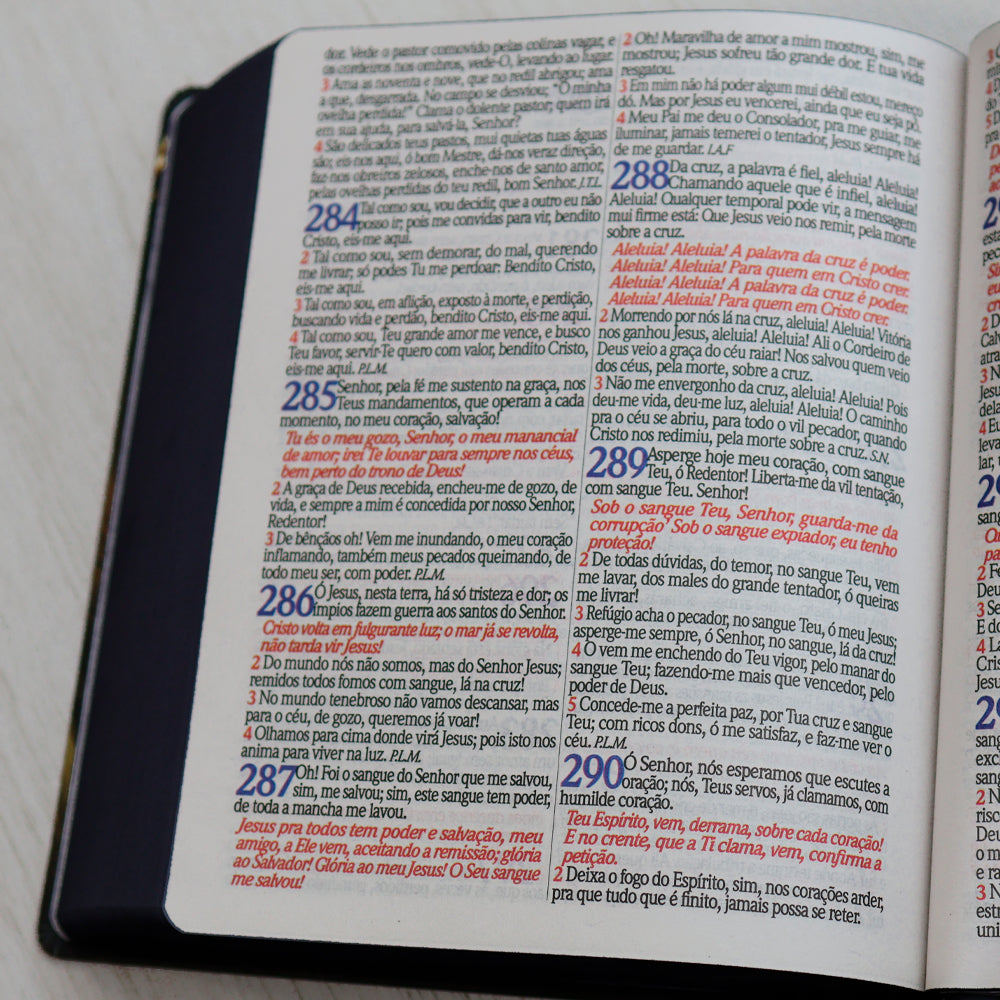 dor. Vede o pastor comovido pelas colinas vagar, e
os cordeiros nos ombros, vede-O, levando ao lugar.
3 Ama as noventa e nove, que no redil abrigou; ama
a que, desgarrada. No campo se desviou; "Ó minha
ovelha perdida!" Clama o dolente pastor; quem irá
em sua ajuda, para salvá-la, Senhor?
4 São delicados teus pastos, mui quietas tuas águas
são; eis-nos aqui, ó bom Mestre, dá-nos veraz direção,
faz-nos obreiros zelosos, enche-nos de santo amor,
pelas ovelhas perdidas do teu redil, bom Senhor. J.T.L.
284 Tal como sou, vou decidir, que a outro eu não
posso ir; pois me convidas para vir, bendito
Cristo, eis-me aqui.
2 Tal como sou, sem demorar, do mal, querendo
me livrar; só podes Tu me perdoar: Bendito Cristo,
eis-me aqui.
3 Tal como sou, em aflição, exposto à morte, e perdição,
buscando vida e perdão, bendito Cristo, eis-me aqui.
4 Tal como sou, Teu grande amor me vence, e busco
Teu favor, servir-Te quero com valor, bendito Cristo,
eis-me aqui. P.L.M.
285 Senhor, pela fé me sustento na graça, nos
Teus mandamentos, que operam a cada
momento, no meu coração, salvação!
Tu és o meu gozo, Senhor, o meu manancial
de amor; irei Te louvar para sempre nos céus,
bem perto do trono de Deus!
2 A graça de Deus recebida, encheu-me de gozo, de
vida, e sempre a mim é concedida por nosso Senhor,
Redentor!
3 De bênçãos oh! Vem me inundando, o meu coração
inflamando, também meus pecados queimando, de
todo meu ser, com poder. P.L.M.
286 Ó Jesus, nesta terra, há só tristeza e dor; os
ímpios fazem guerra aos santos do Senhor.
Cristo volta em fulgurante luz; o mar já se revolta,
não tarda vir Jesus!
2 Do mundo nós não somos, mas do Senhor Jesus;
remidos todos fomos com sangue, lá na cruz!
3 No mundo tenebroso não vamos descansar, mas
para o céu, de gozo, queremos já voar!
4 Olhamos para cima donde virá Jesus; pois isto nos
anima para viver na luz. P.L.M.
287 Oh! Foi o sangue do Senhor que me salvou,
sim, me salvou; sim, este sangue tem poder,
de toda a mancha me lavou.
Jesus pra todos tem poder e salvação, meu
amigo, a Ele vem, aceitando a remissão; glória
ao Salvador! Glória ao meu Jesus! O Seu sangue
me salvou!
2 Oh! Maravilha de amor a mim mostrou, sim, me
mostrou; Jesus sofreu tão grande dor. E tua vida
resgatou.
3 Em mim não há poder algum mui débil estou, mereço
dó. Mas por Jesus eu vencerei, ainda que eu seja pó.
4 Meu Pai me deu o Consolador, pra me guiar, me
iluminar, jamais temerei o tentador, Jesus sempre há
de me guardar. I.A.F
288 Da cruz, a palavra é fiel, aleluia! Aleluia!
Chamando aquele que é infiel, aleluia!
Aleluia! Qualquer temporal pode vir, a mensagem
mui firme está: Que Jesus veio nos remir, pela morte
sobre a cruz.
Aleluia! Aleluia! A palavra da cruz é poder.
Aleluia! Aleluia! Para quem em Cristo crer.
Aleluia! Aleluia! A palavra da cruz é poder.
Aleluia! Aleluia! Para quem em Cristo crer.
2 Morrendo por nós lá na cruz, aleluia! Aleluia! Vitória
nos ganhou Jesus, aleluia! Aleluia! Ali o Cordeiro de
Deus veio a graça do céu raiar! Nos salvou quem veio
dos céus, pela morte, sobre a cruz.
3 Não me envergonho da cruz, aleluia! Aleluia! Pois
deu-me vida, deu-me luz, aleluia! Aleluia! O caminho
pra o céu se abriu, para todo o vil pecador, quando
Cristo nos redimiu, pela morte sobre a cruz. S.N.
289 Asperge hoje meu coração, com sangue
Teu, ó Redentor! Liberta-me da vil tentação,
com sangue Teu. Senhor!
Sob o sangue Teu, Senhor, guarda-me da
corrupção' Sob o sangue expiador, eu tenho
proteção!
2 De todas dúvidas, do temor, no sangue Teu, vem
me lavar, dos males do grande tentador, ó queiras
me livrar!
3 Refúgio acha o pecador, no sangue Teu, ó meu Jesus;
asperge-me sempre, ó Senhor, no sangue, lá da cruz!
4 O vem me enchendo do Teu vigor, pelo manar do
sangue Teu; fazendo-me mais que vencedor, pelo
poder de Deus.
5 Concede-me a perfeita paz, por Tua cruz e sangue
Teu; com ricos dons, ó me satisfaz, e faz-me ver o
céu. P.L.M.
290 Ó Senhor, nós esperamos que escutes a
oração; nós, Teus servos, já clamamos, com
humilde coração.
Teu Espírito, vem, derrama, sobre cada coração!
E no crente, que a Ti clama, vem, confirma a
petição.
2 Deixa o fogo do Espírito, sim, nos corações arder,
pra que tudo que é finito, jamais possa se reter.